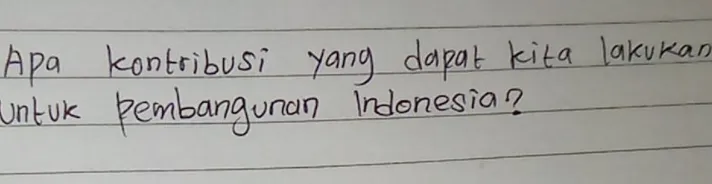 Apa kontribusi yang dapat kita lakukan
untuk pembangunan Indonesia?